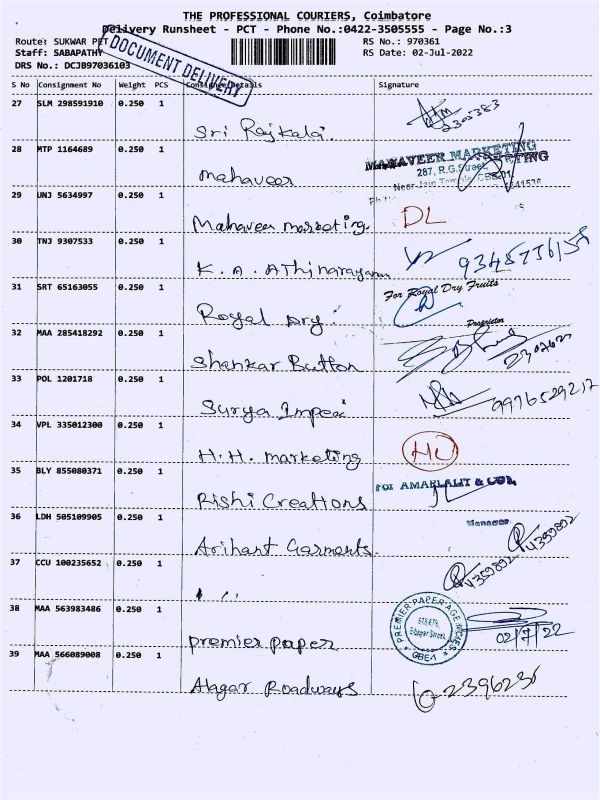 THE PROFESSIONAL COURIERS, Coimbatore
Delivery Runsheet - PCT - Phone No.:0422-3505555 - Page No.:3
Route: SUKWAR PET
RS No.: 970361
Staff: SABAPATHY
RS Date: 02-Jul-2022
DRS No.: DCJB97036103
DOCUMENT DELIVERY
S No Consignment No Weight PCS Consignee Details Signature
27 SLM 298591910 0.250 1
Sri Rajkala 2305383
28 MTP 1164689 0.250 1
Mahaveer
MAHAVEER MARKETING
287, R.G.Street,
Near Jain Temple, CBE-01
29 UNJ 5634997 0.250 1
Mahaveer marketing. DL
30 TNJ 9307533 0.250 1
K.A. Athinarayanan
31 SRT 65163055 0.250 1
Royal Dry
For Royal Dry Fruits
Proprietor
32 MAA 285418292 0.250 1
Shankar Button
33 POL 1201718 0.250 1
Surya Impex 9976529217
34 VPL 335012300 0.250 1
H.H. marketing
35 BLY 855080371 0.250 1
Rishi Creations
For AMARLALIT & COB,
Manager
36 LDH 505109905 0.250 1
Arihant Garments.
37 CCU 100235652 0.250 1
38 MAA 563983486 0.250 1
premier paper 02/7/22
PREMIER PAPER AGENCIES
CBE-1
39 MAA 566089008 0.250 1
Alagar Roadways